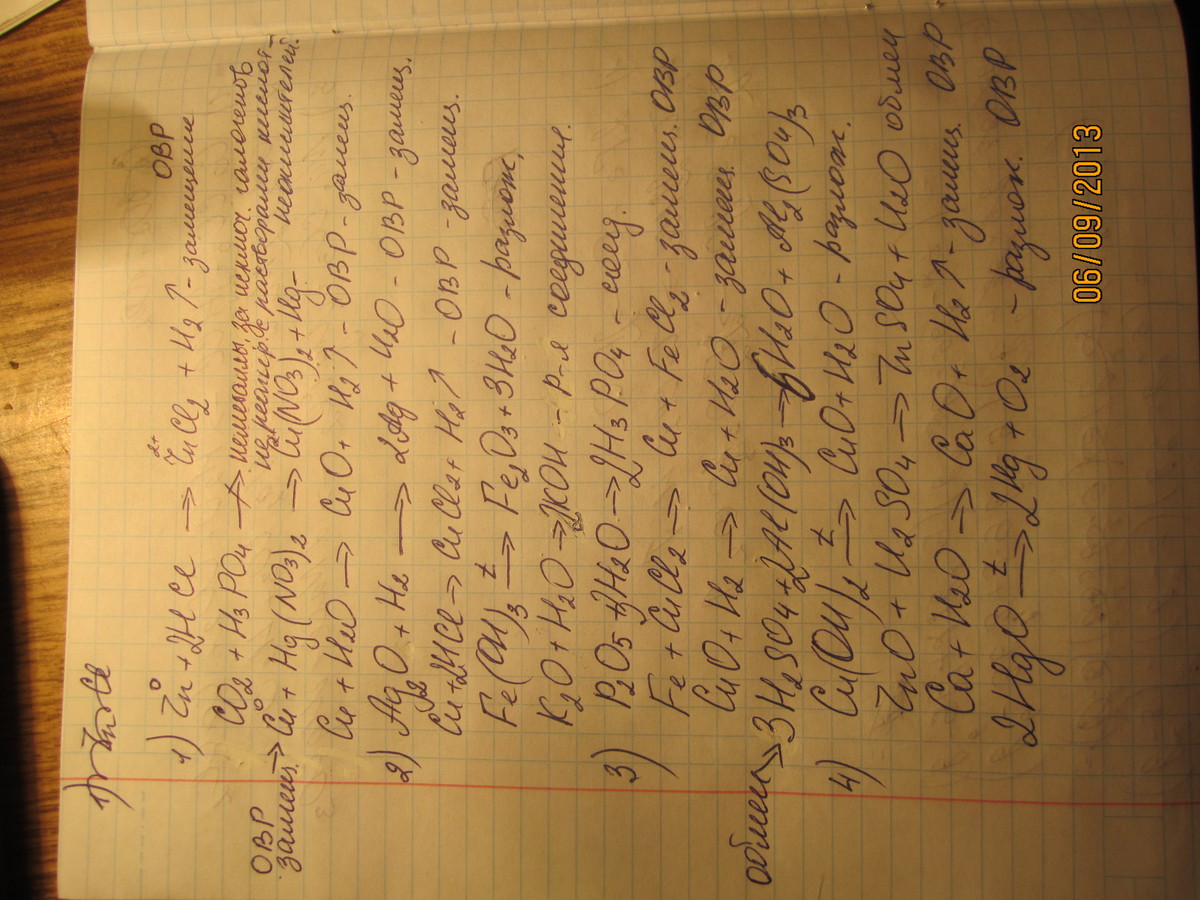 1)
1) Zn⁰ + 2HCl → Zn²⁺Cl₂ + H₂↑ - замещение ОВР
CO₂ + H₃PO₄ ↛ неметаллы, за исключ. галогенов
не реагир. с растворами кислот-
неокислителей.
ОВР
замещ. → Cu + Hg(NO₃)₂ → Cu(NO₃)₂ + Hg-
Cu + H₂O → CuO + H₂↑ - ОВР - замещ.
2) Ag₂O + H₂ → 2Ag + H₂O - ОВР - замещ.
Cu + 2HCl → CuCl₂ + H₂↑ - ОВР - замещ.
Fe(OH)₃ →t Fe₂O₃ + 3H₂O - разлож.
K₂O + H₂O → 2KOH - р-я соединения.
3) P₂O₅ + 3H₂O → 2H₃PO₄ - соед.
Fe + CuCl₂ → Cu + FeCl₂ - замещ. ОВР
CuO + H₂ → Cu + H₂O - замещ. ОВР
обмен → 3H₂SO₄ + 2Al(OH)₃ → 6H₂O + Al₂(SO₄)₃
4) Cu(OH)₂ →t CuO + H₂O - разлож.
ZnO + H₂SO₄ → ZnSO₄ + H₂O обмен
Ca + H₂O → CaO + H₂↑ - замещ. ОВР
2HgO →t 2Hg + O₂ - разлож. ОВР
06/09/2013